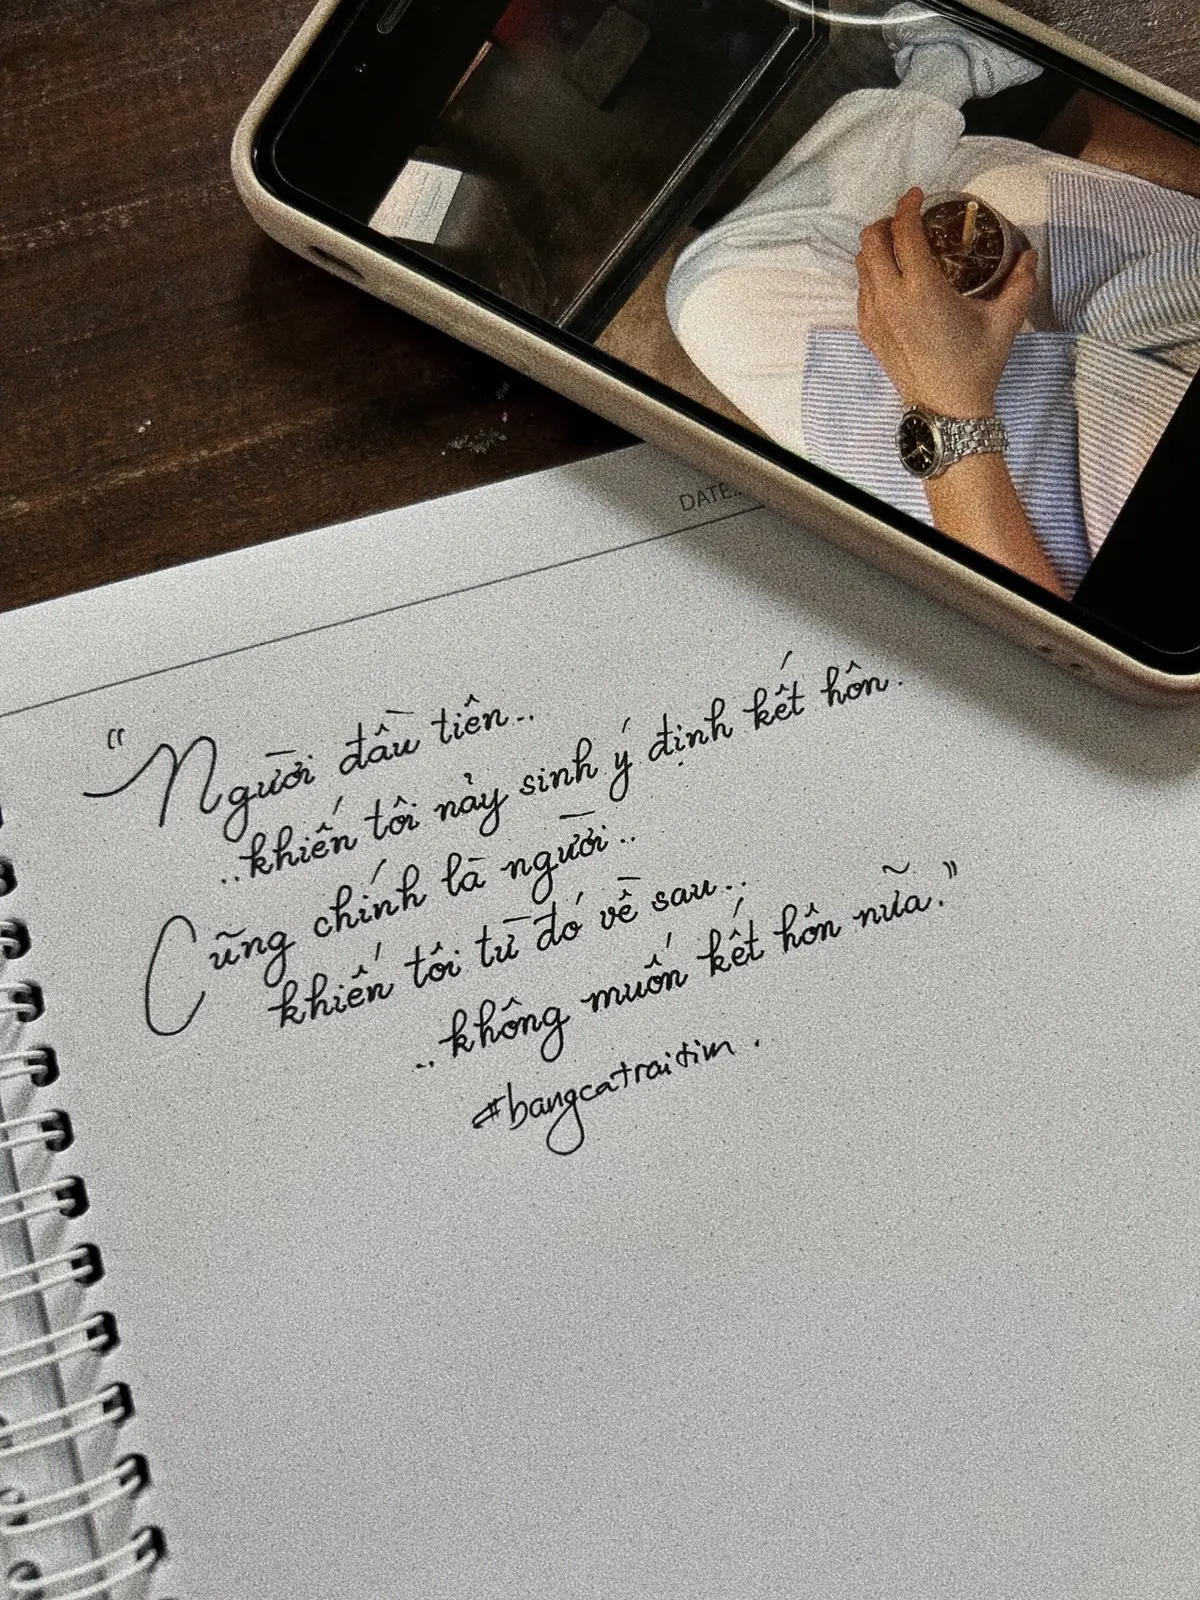 DATE..
"Người đầu tiên..
..khiến tôi nảy sinh ý định kết hôn.
Cũng chính là người..
khiến tôi từ đó về sau..
..không muốn kết hôn nữa."
#bangcatraitim.